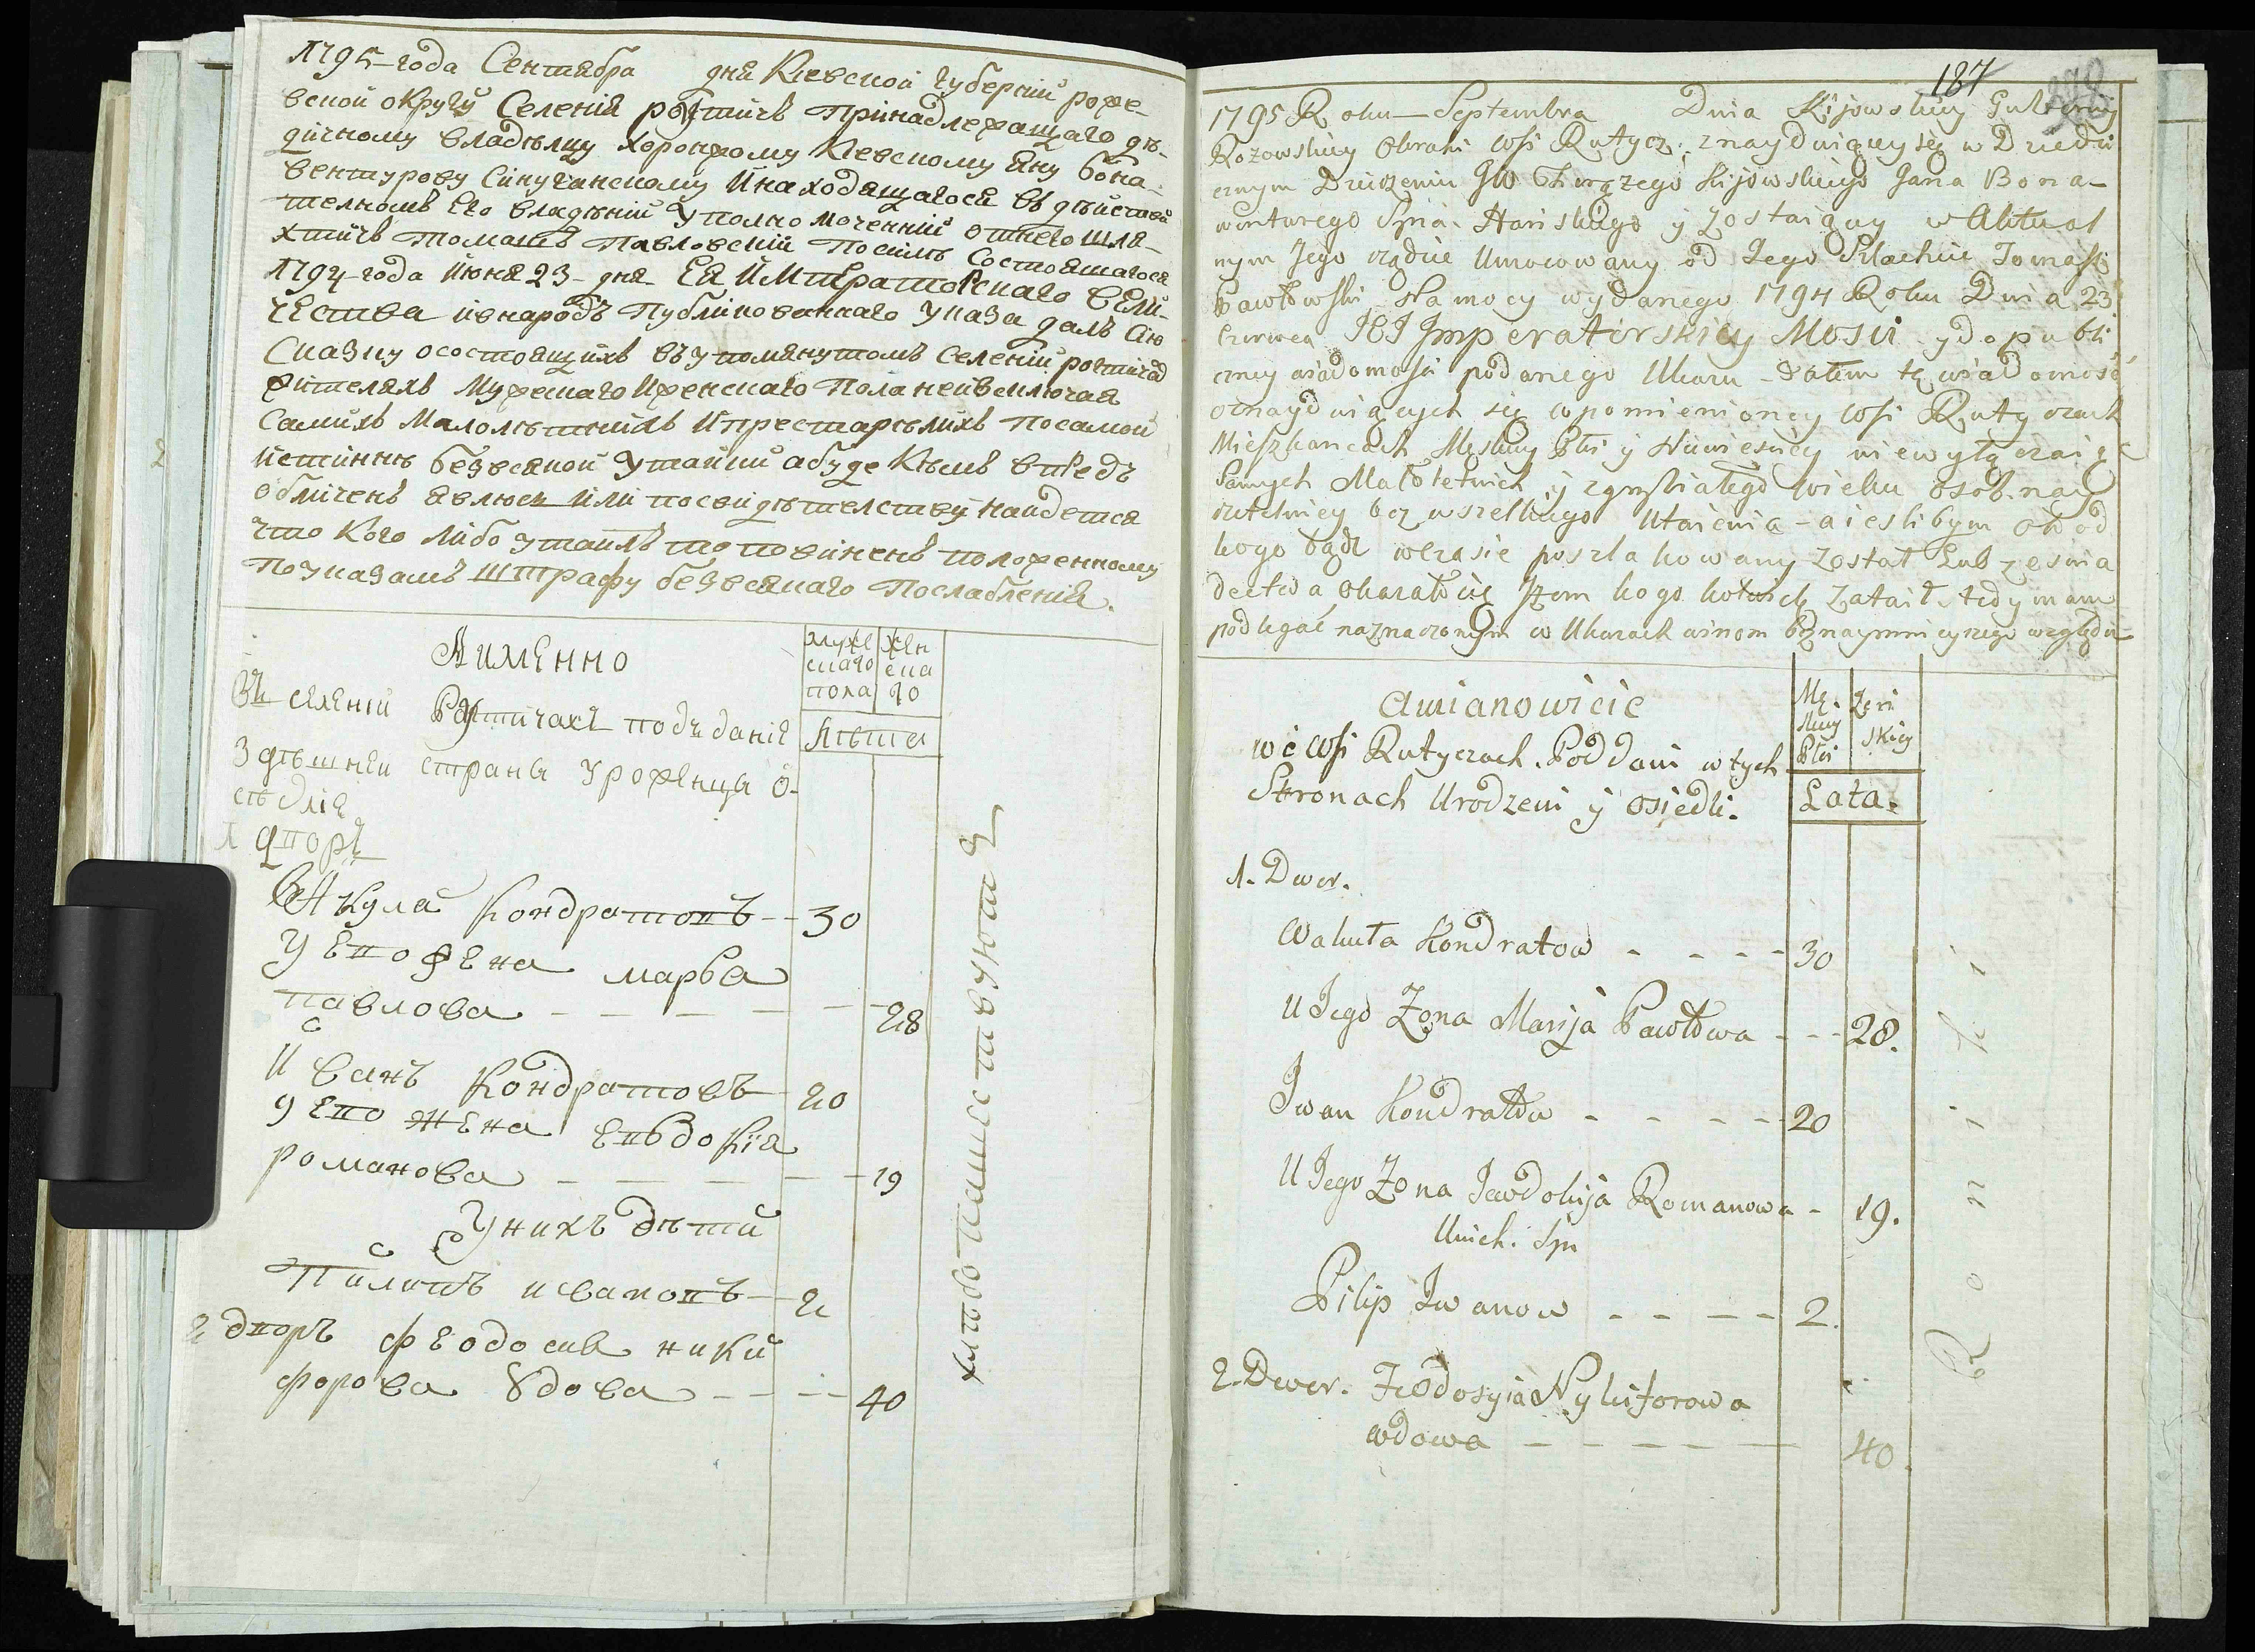 1795 года Сентября дня Киевской Губернии роже-
вской округи Селения рутичъ принадлежащаго дѣ-
дичному владѣлцу хорონжому Киевскому Яну бона-
вентурову Синуганскому И находящагося въ дѣйстви
телномъ Его владѣнии Уполномоченний отнего шля-
хтичъ томашъ Павловский Посилѣ Состоявшагося
1794 года июня 23 дня Ея ИМператоРскаго ВЕли-
чества ивнародъ Публикованнаго Указа далъ Сию
Сказку осостоящихъ въ упомянутомъ Селении рутичах
жителяхъ Мужескаго Иженскаго Пола неивключая
Самихъ Малолѣтнихъ Ипрестарѣлихъ Посамой
истиннѣ безвсякой Утайки абуде Кѣмъ впредъ
обличенъ явлюсь или посвидѣтелству найдется
что Кого либо утаилъ то повиненъ положенному
Поуказамъ Штрафу безвсякаго Послабления.
АИМЕННО
муже
скаго
пола
жен
ска
го
Въ селении Рутичахъ подъдания
Здѣшней страны урожЕнци о-
сѣдлiе
Лѣта
1 дворъ
Вакула Кондратовъ -- 30
у Его жена марья
павлова - - - - - 28
Иванъ Кондратовъ 20
у Его жена Евдокiя
романова - - - - - 19
Унихъ дѣти
Пилипъ ивановъ 2
2 дворъ феодосия ники
форова вдова - - - - 40
хлѣбопашествуют
187
1795 Roku Septembra Dnia Kijowskiey Gubernij
Rozowskiey Okrahi wsi Rutycz: znayduiącey się w Dziedzi
cznym Dzierzeniu JW Chorązego Kijowskiego Jana Bona-
wenturego Hanskiego y zostaiącey w Aktual
nym Jego rządzie Umocowany od Jego Szlachcic Tomasz
Pawłowski Na mocy wydanego 1794 Roku Dnia 23
Czerwca JEJ Imperatorskiey Mosci y do publi
czney wiadomości podanego Ukazu - Zatem tę wiadomość
oznayduiących się w pomienioney wsi Rutyczach
Mieszkancach Męskiey Płci y Niewiesciey niewyłączaiąc
Samych Małoletnich y zgrzybiałego wieku osob. nay
rzetelniey bez wszelkiego Utaienia - a iesli bym ok od
kogo bądz wczasie poszlakowany został Lub zeswia
dectwa okazałosie Jzem kogo kolwiek Zataił tedy mam
podlegać naznaczonym w Ukazach winom beznaymnieyszego względu
Amianowicie
we wsi Rutyczach. Poddani w tych
Stronach Urodzeni y osiedli.
Mę
skiey
Płci
Zen
skiey
Lata.
1. Dwor.
Wakuła Kondratow - - - - 30
U Jego Zona Marija Pawłowa - - - 28.
Iwan Kondratow - - - - 20
U Jego Zona Jewdokija Romanowa - 19.
Unich. Syn
Pilip Iwanow - - - - 2.
2. Dwor. Teodosyia Nykiforowa
wdowa - - - - - - 40.
Rolnicki